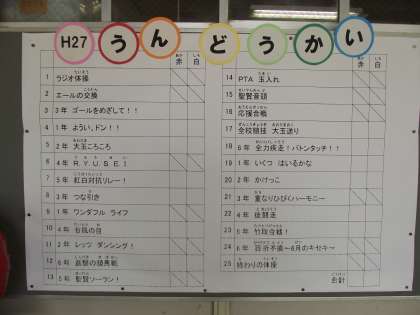 H27 うんどうかい
赤 白
1 ラジオ体操
2 エールの交換
3 3年 ゴールをめざして!!
4 1年 ようい、ドン!!
5 2年 大玉ころころ
6 4年 R.Y.U.S.E.I
7 5年 紅白対抗リレー!
8 3年 つな引き
9 1年 ワンダフル ライフ
10 4年 台風の目
11 2年 レッツ ダンシング!
12 6年
13 5年 聖賢ソーラン!
赤 白
14 PTA 玉入れ
15 聖賢音頭
16 応援合戦
17 全校競技 大玉送り
18 6年 全力疾走!バトンタッチ!!
19 1年 いくつ はいるかな
20 2年 かけっこ
21 3年 重なりひびくハーモニー
22 4年 徒競走
23 5年 竹取合戦!
24 6年 百折不撓~6月のキセキ~
25 終わりの体操
合計